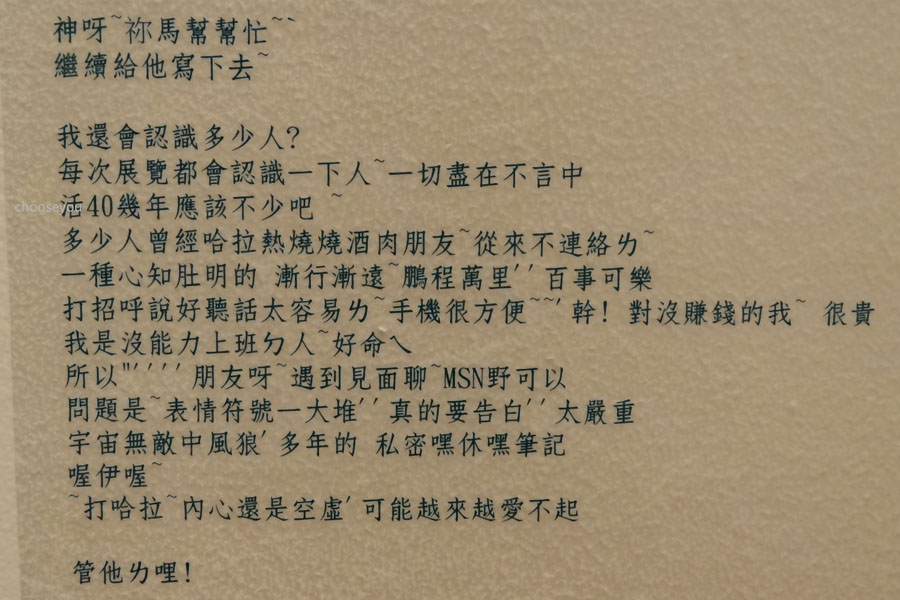 神呀~祢馬幫幫忙~`
繼續給他寫下去~
我還會認識多少人?
每次展覽都會認識一下人~一切盡在不言中
chooseyou
活40幾年應該不少吧 ~
多少人曾經哈拉熱燒燒酒肉朋友~從來不連絡ㄌ~
一種心知肚明的 漸行漸遠~鵬程萬里′′百事可樂
打招呼說好聽話太容易ㄌ~手機很方便~~′幹! 對沒賺錢的我~ 很貴
我是沒能力上班ㄉ人~好命ㄟ
所以"′′′′朋友呀~遇到見面聊~MSN野可以
問題是~表情符號一大堆′′真的要告白′′太嚴重
宇宙無敵中風狼′多年的 私密嘿休嘿筆記
喔伊喔~
~打哈拉~內心還是空虛′可能越來越愛不起
管他ㄌ哩!